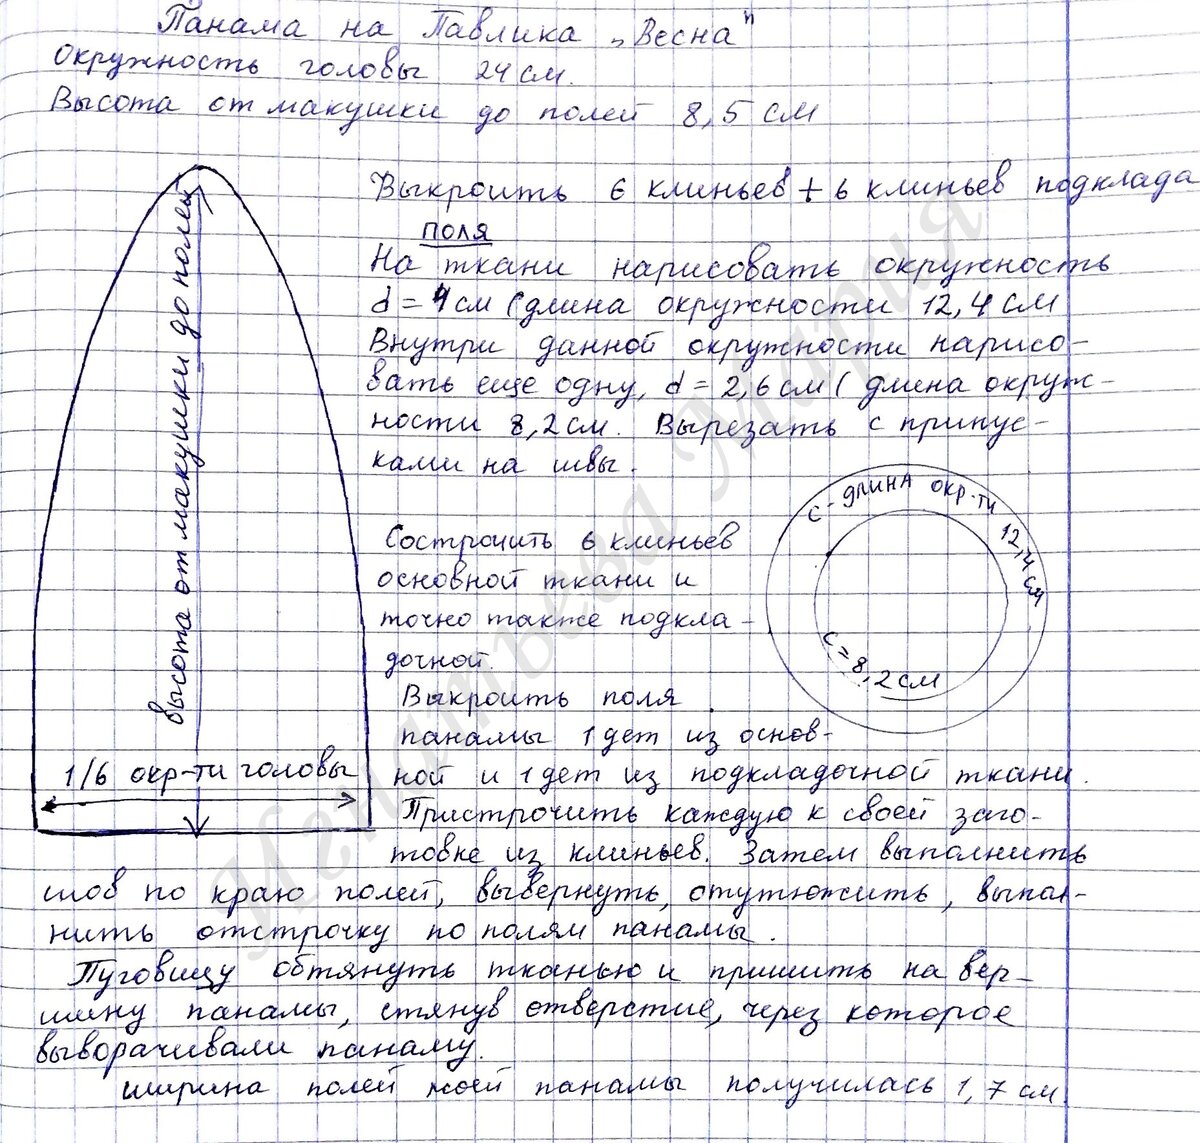 Панама на Павлика „Весна"
Окружность головы 24 см.
Высота от макушки до полей 8,5 см
Выкроить 6 клиньев + 6 клиньев подклада
поля
На ткани нарисовать окружность
d = 4 см (длина окружности 12,4 см
Внутри данной окружности нарисо-
вать еще одну, d = 2,6 см (длина окруж-
ности 8,2 см. Вырезать с припус-
ками на швы.
высота от макушки до полей
1/6 окр-ти головы
С - длина окр-ти 12,4 см
С = 8,2 см
Сострочить 6 клиньев
основной ткани и
точно также подкла-
дочной.
Выкроить поля
панамы 1 дет из основ-
ной и 1 дет из подкладочной ткани.
Пристрочить каждую к своей заго-
товке из клиньев. Затем выполнить
шов по краю полей, вывернуть, отутюжить, выпол-
нить отстрочку по полям панамы.
Пуговицу обтянуть тканью и пришить на вер-
шину панамы, стянув отверстие, через которое
выворачивали панаму.
ширина полей моей панамы получилась 1,7 см
Игнатьева Мария